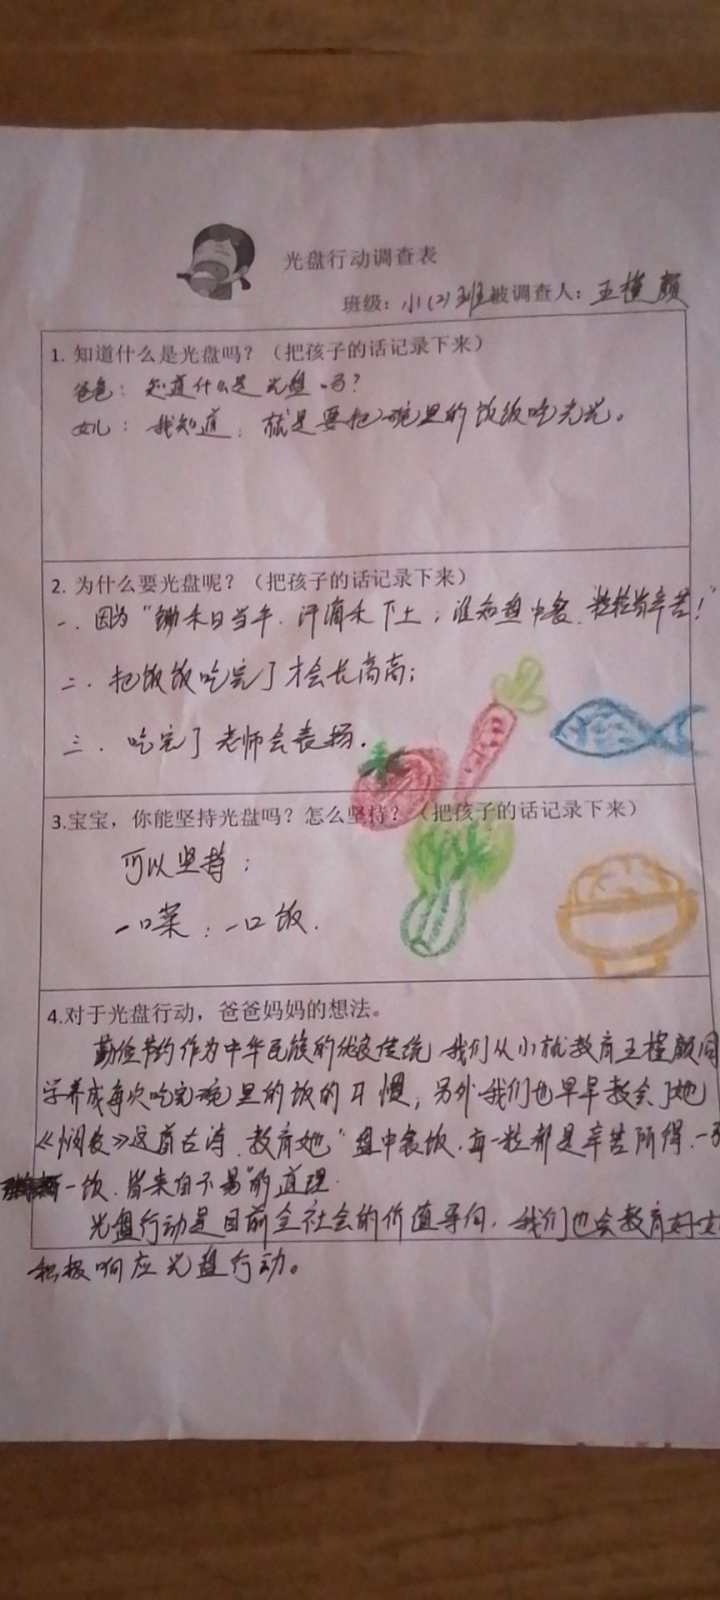 光盘行动调查表
班级：小(2)班被调查人：王槿颜
1. 知道什么是光盘吗？（把孩子的话记录下来）
爸爸：知道什么是光盘吗？
女儿：我知道，就是要把碗里的饭饭吃光光。
2. 为什么要光盘呢？（把孩子的话记录下来）
一、因为“锄禾日当午，汗滴禾下土，谁知盘中餐，粒粒皆辛苦！”
二、把饭饭吃完了才会长高高；
三、吃完了老师会表扬。
3.宝宝，你能坚持光盘吗？怎么坚持？（把孩子的话记录下来）
可以坚持：
一口菜；一口饭.
4.对于光盘行动，爸爸妈妈的想法。
勤俭节约作为中华民族的优良传统，我们从小就教育王槿颜同
学养成每次吃完碗里的饭的习惯，另外我们也早早教会了她
《悯农》这首古诗，教育她“盘中食饭，每一粒都是辛苦所得，一
一饭，皆来自不易”的道理.
光盘行动是目前全社会的价值导向，我们也会教育好女
积极响应光盘行动。